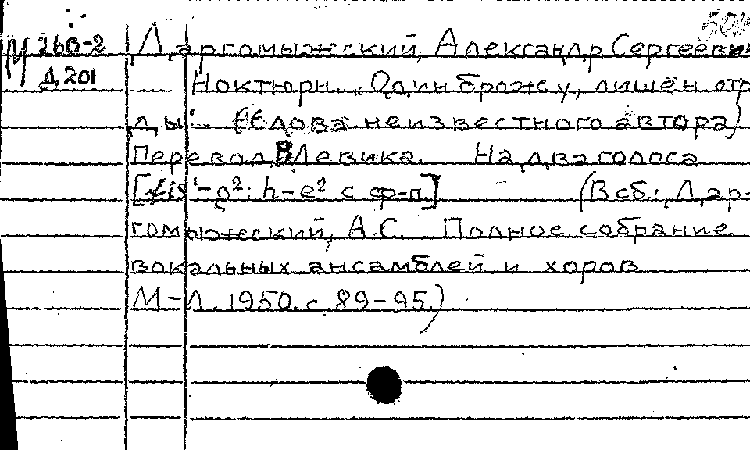 М 260-2 Даргомыжский, Александр Сергеевич
Д 201 Ноктюрн. „Один брожу, лишён отра-
ды". (Слова неизвестного автора)
Перевод В Левика. На два голоса
[fis¹-g²; h-e² с ф-п.] (В сб.: Дар-
гомыжский, А.С. Полное собрание
вокальных ансамблей и хоров
М-Л. 1950. с 89-95.)